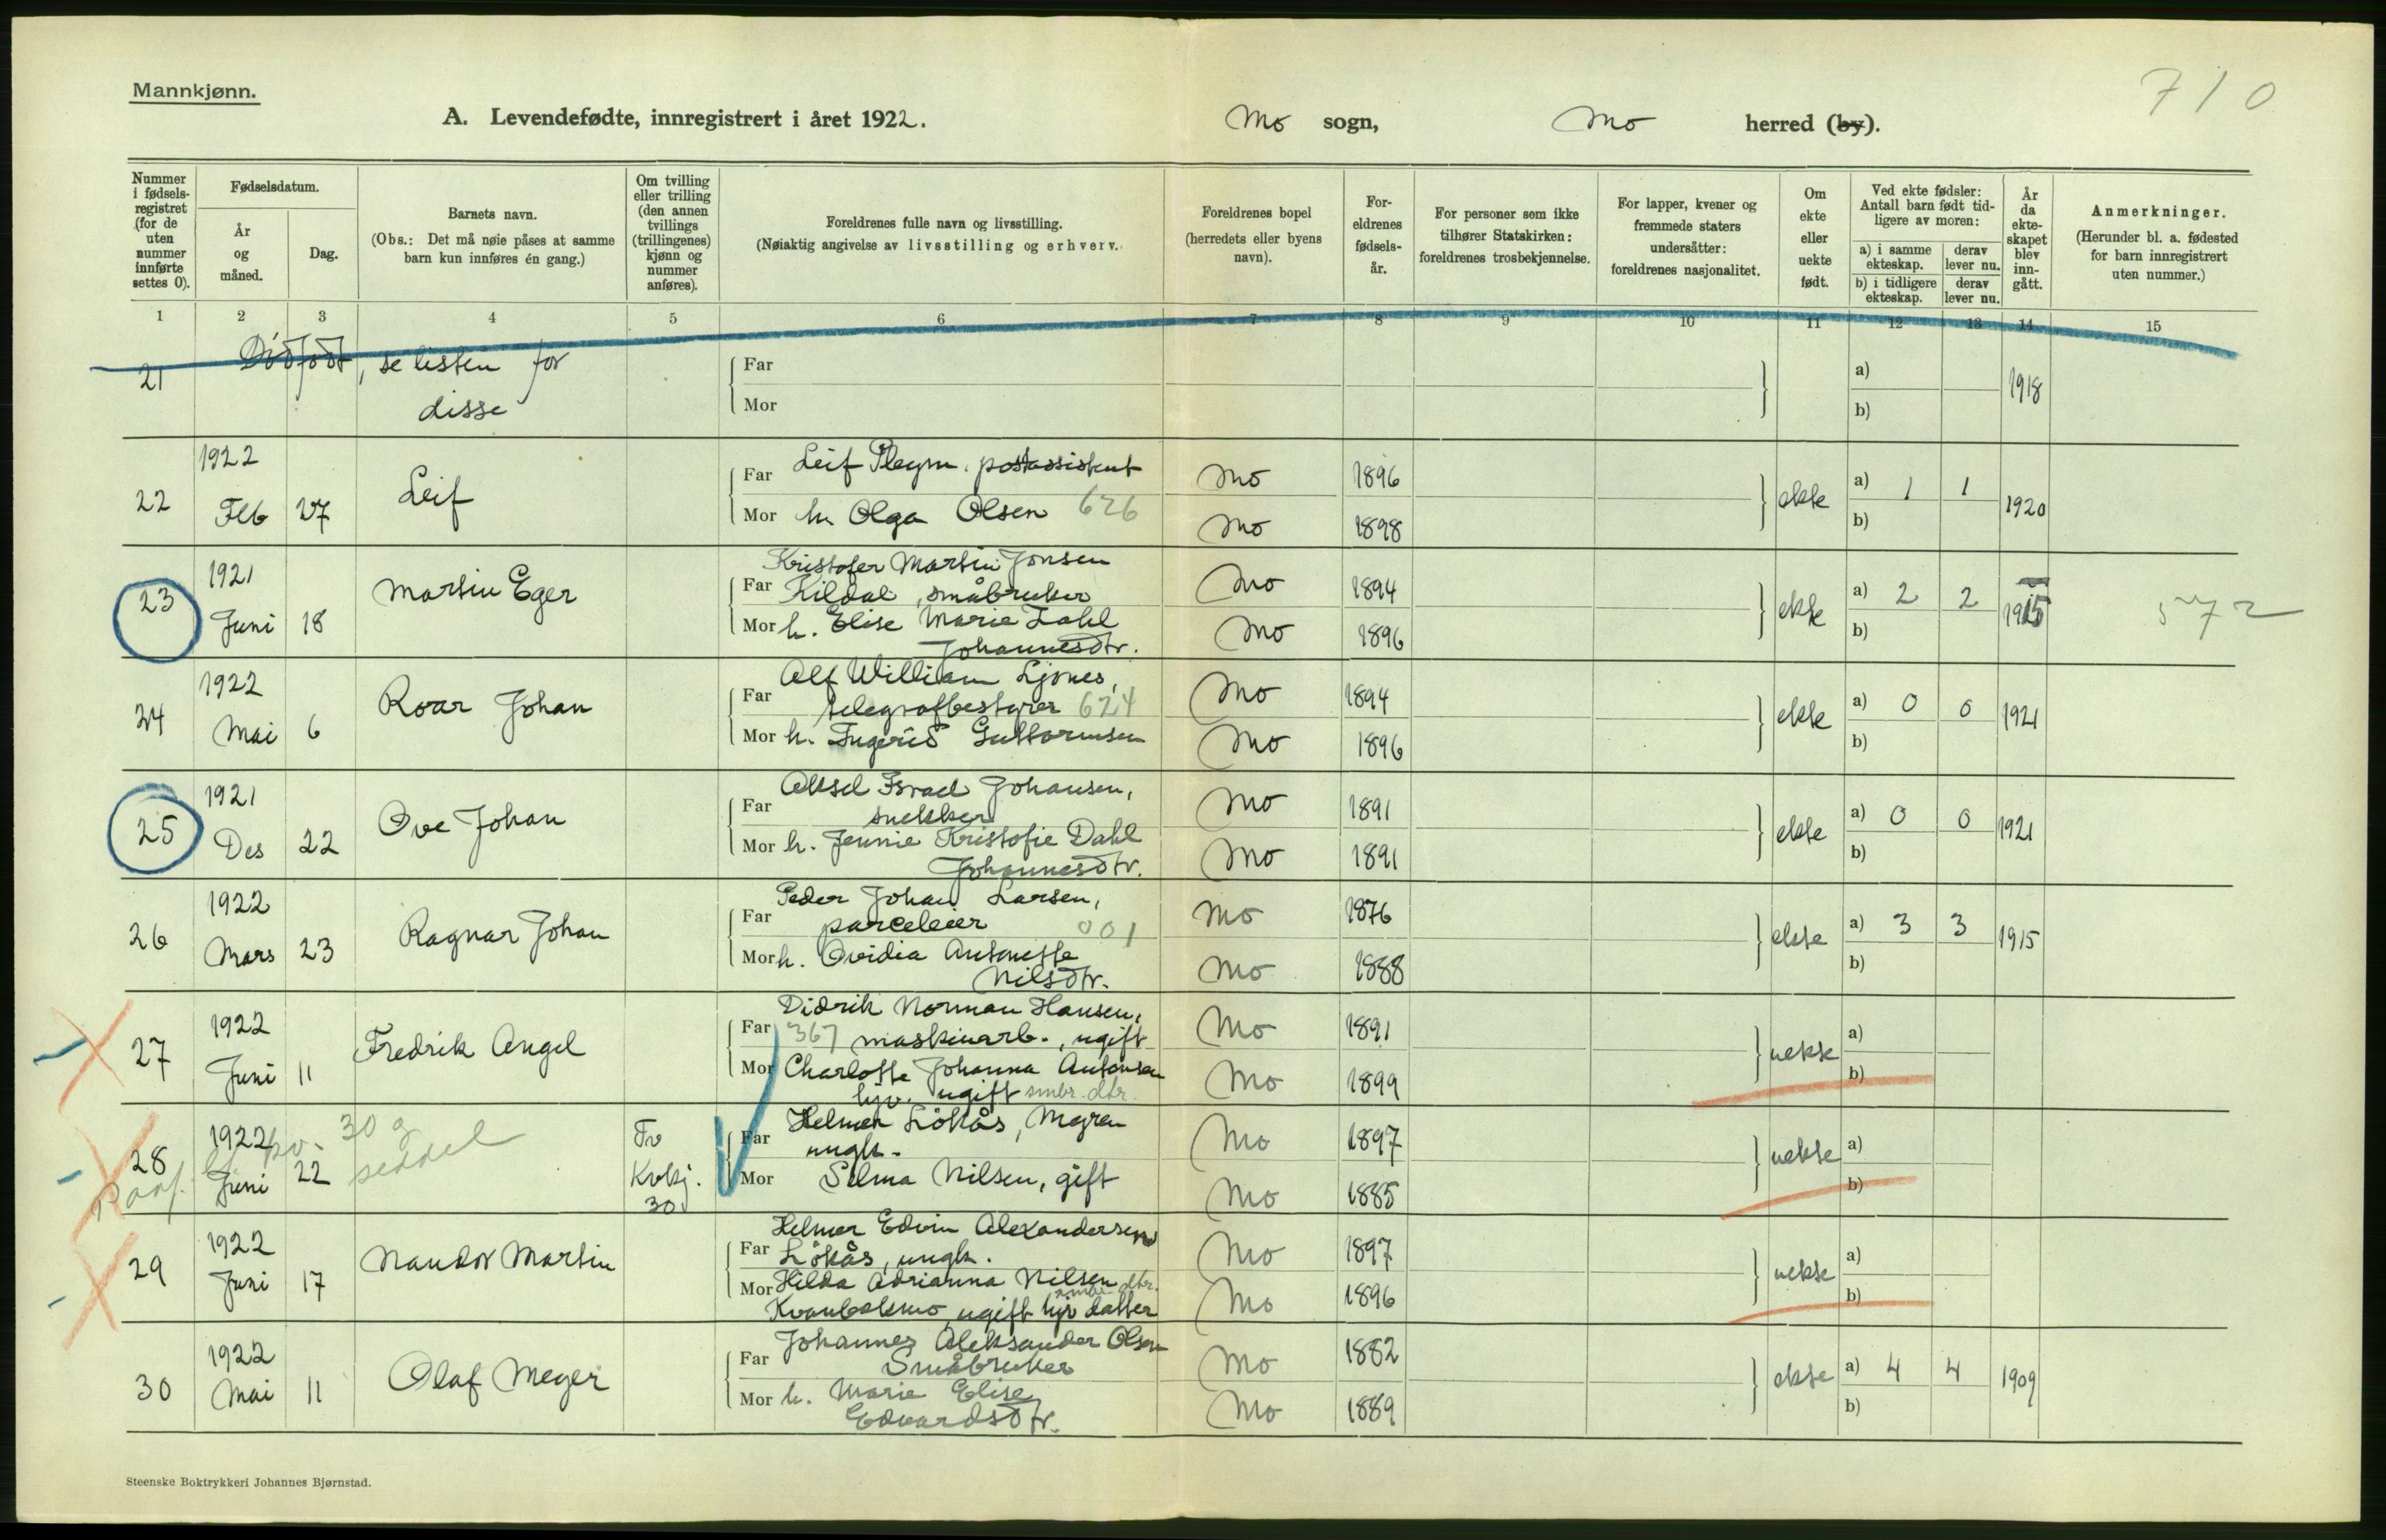 Mannkjønn.
710
A. Levendefødte, innregistrert i året 1922.
Mo sogn, Mo herred (by).
Nummer i fødsels-registret (for de uten nummer innførte settes 0).
Fødselsdatum.
År og måned.
Dag.
Barnets navn.
(Obs.: Det må nøie påses at samme barn kun innføres én gang.)
Om tvilling eller trilling (den annen tvillings (trillingenes) kjønn og nummer anføres).
Foreldrenes fulle navn og livsstilling.
(Nøiaktig angivelse av livsstilling og erhverv.)
Foreldrenes bopel (herredets eller byens navn).
For-eldrenes fødsels-år.
For personer som ikke tilhører Statskirken: foreldrenes trosbekjennelse.
For lapper, kvener og fremmede staters undersåtter: foreldrenes nasjonalitet.
Om ekte eller uekte født.
Ved ekte fødsler: Antall barn født tid-ligere av moren:
a) i samme ekteskap. derav lever nu.
b) i tidligere ekteskap. derav lever nu.
År da ekte-skapet blev inn-gått.
Anmerkninger.
(Herunder bl. a. fødested for barn innregistrert uten nummer.)
1 2 3 4 5 6 7 8 9 10 11 12 13 14 15
21 Dödfödt, se listen for Far a) 1918
disse Mor b)
1922 Leif Plegm, postassistent
22 Feb 27 Leif Far Mo 1896 ekte a) 1 1 1920
Mor h. Olga Olsen 626 Mo 1898 b)
1921 Kristofer Martin Jonsen
23 Juni 18 Martin Eger Far Kildal, småbruker Mo 1894 ekte a) 2 2 1915 572
Mor h. Elise Marie Dahl Mo 1896 b)
Johannesdtr.
1922 Alf William Ljones,
24 Mai 6 Roar Johan Far telegrafbestyrer 624 Mo 1894 ekte a) 0 0 1921
Mor h. Ingerid Guttormsen Mo 1896 b)
1921 Aksel Israel Johansen,
25 Des 22 Ove Johan Far snekker Mo 1891 ekte a) 0 0 1921
Mor h. Jennie Kristofie Dahl Mo 1891 b)
Johannesdtr.
1922 Peder Johan Larsen,
26 Mars 23 Ragnar Johan Far parceleier 001 Mo 1876 ekte a) 3 3 1915
Mor h. Ovidia Antonette Mo 1888 b)
Nilsdtr.
1922 Didrik Norman Hansen,
27 Juni 11 Fredrik Angel Far 367 maskinarb., ugift Mo 1891 uekte a)
Mor Charlotte Johanna Antonsen Mo 1899 b)
hjv. ugift smbr. dtr.
1922 30 g Tv Helmer Lökås, Megren
28 Juni 22 seddel Kvkj. 30 Far ungk. Mo 1897 uekte a)
Mor Selma Nilsen, gift Mo 1885 b)
1922 Helmer Edvin Alexandersen
29 Juni 17 Nandor Martin Far Lökås, ungk. Mo 1897 uekte a)
Mor Hilda Adrianna Nilsen Mo 1896 b)
Kvanbolmo, ugift hjv datter
1922 Johannes Aleksander Olsen
30 Mai 11 Olaf Meyer Far Småbruker Mo 1882 ekte a) 4 4 1909
Mor h. Marie Elise Mo 1889 b)
Edvardsdtr.
Steenske Boktrykkeri Johannes Bjørnstad.